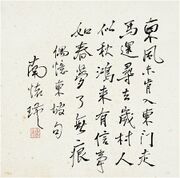 東風未肯入東門走
馬還尋去歲村人
似秋鴻來有信事
如春夢了無痕
偶憶東坡句
南懷瑾